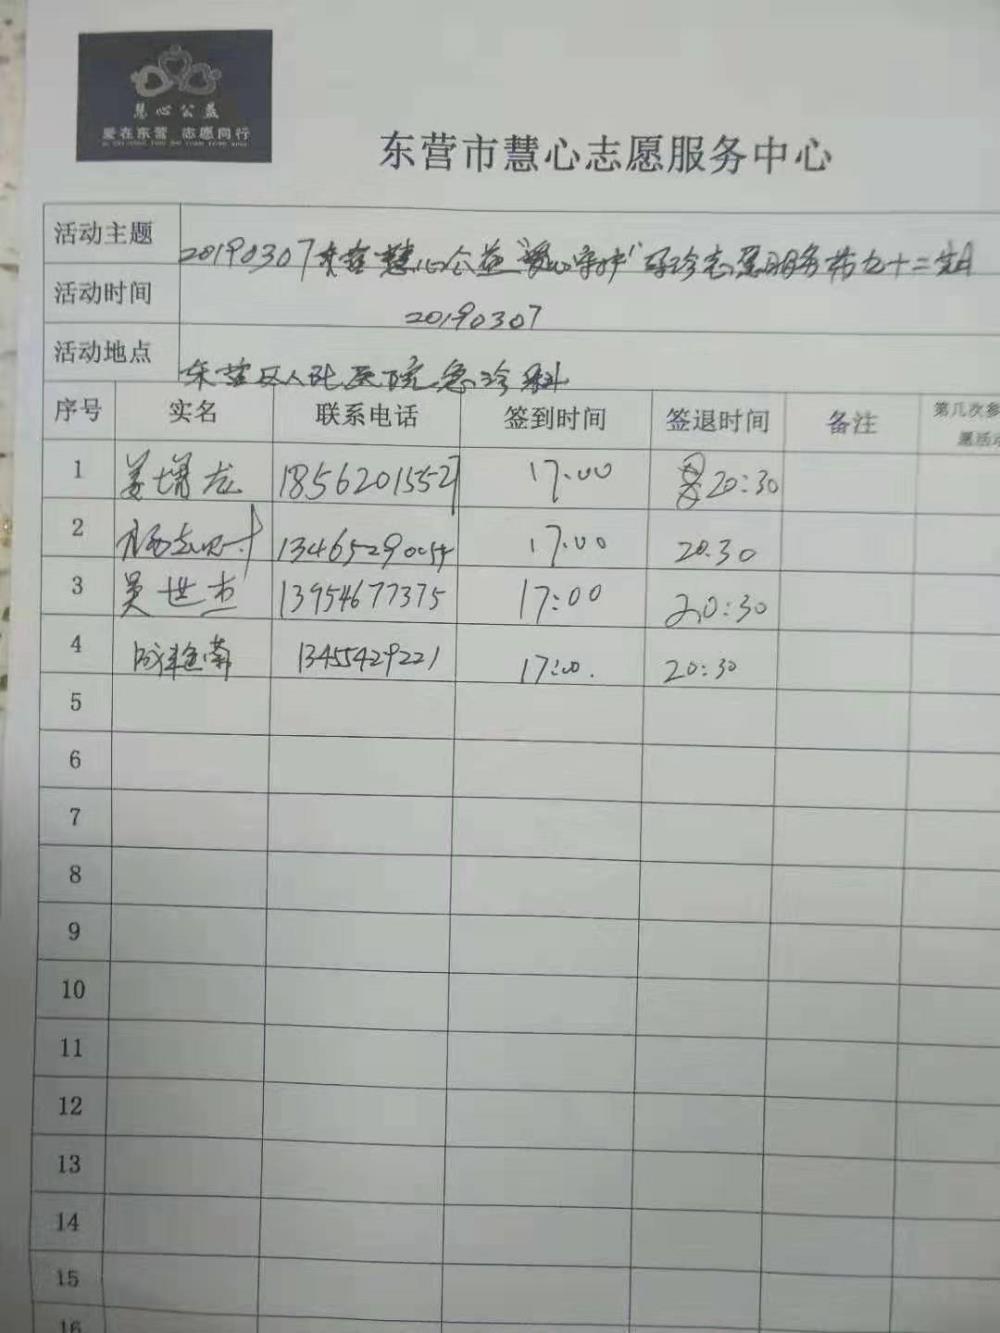 慧心公益
爱在东营 志愿同行
东营市慧心志愿服务中心
活动主题 20190307东营慧心公益"爱心守护"导诊志愿服务第九十二期
活动时间 20190307
活动地点 东营区人民医院急诊科
序号 实名 联系电话 签到时间 签退时间 备注 第几次参
愿活动
1 姜增龙 18562015527 17:00 20:30
2 13465290054 17:00 20:30
3 吴世杰 13954677375 17:00 20:30
4 13455429221 17:00. 20:30
5
6
7
8
9
10
11
12
13
14
15
16